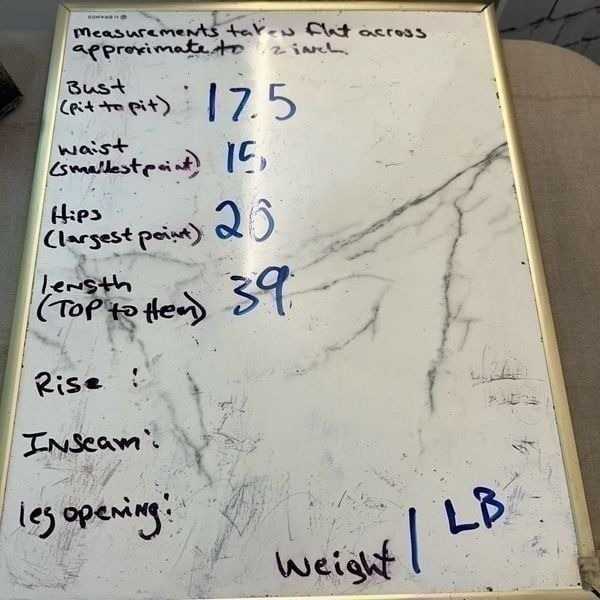 U BRANDS
Measurements taken flat across
approximate to 1/2 inch
Bust
(pit to pit) 17.5
waist
(smallest point) 15
Hips
(largest point) 20
length
(TOP to Hem) 39
Rise :
Inseam:
leg opening:
Weight 1 LB